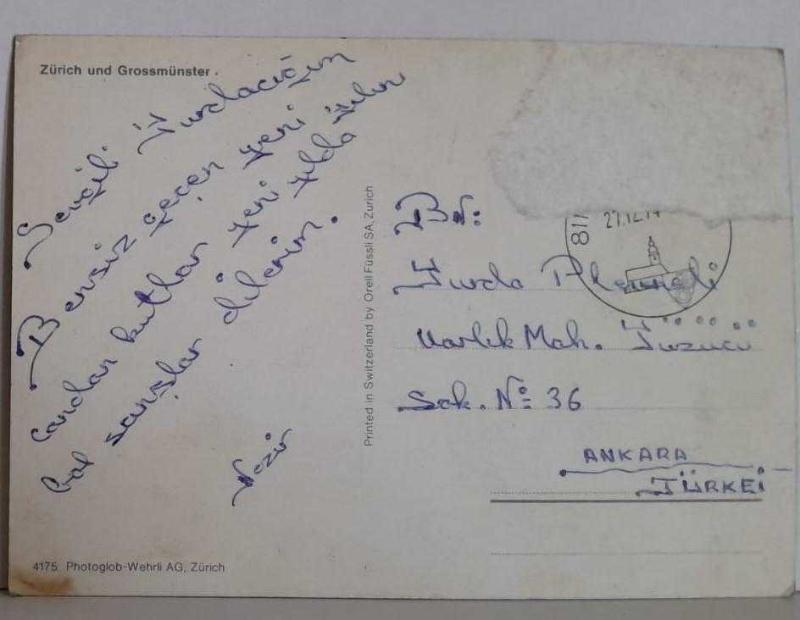 Zürich und Grossmünster.
Sevgili
Bensiz geçen yeni
candan kutlar yeni yılda
bol şanslar dilerim.
Nezir
4175 Photoglob-Wehrli AG, Zürich
Printed in Switzerland by Orell Füssli SA, Zürich
811
Bn:
Varlık Mah.
Sok. No: 36
ANKARA
TÜRKEİ